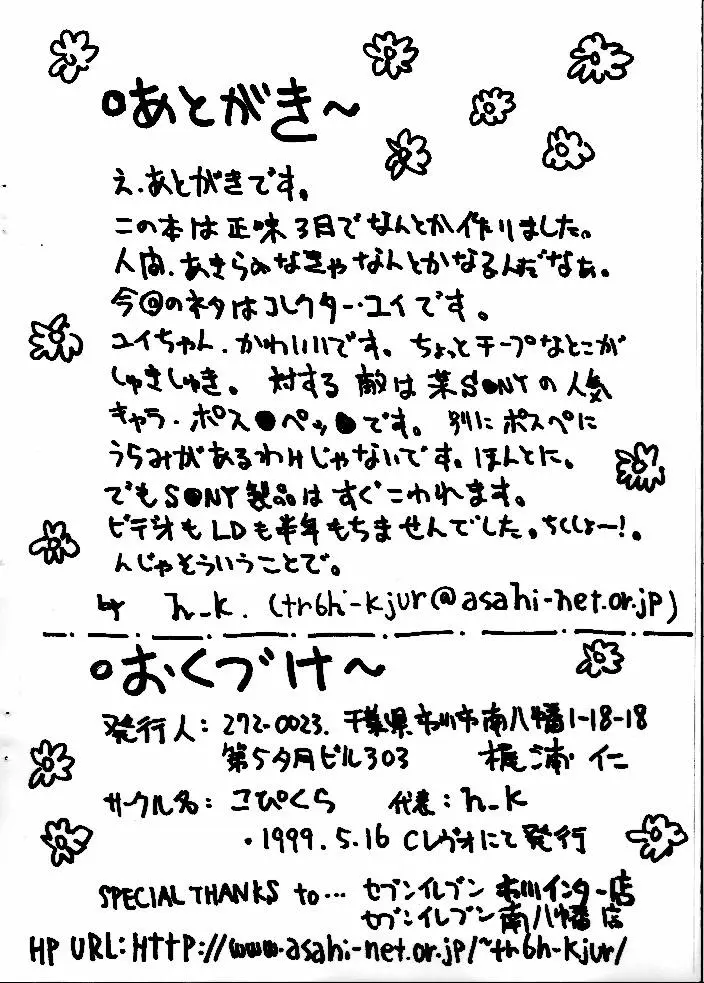 ○あとがき～
え、あとがきです。
この本は正味3日でなんとか作りました。
人間、あきらめなきゃなんとかなるんだなぁ。
今回のネタはコレクター・ユイです。
ユイちゃん、かわいいです。ちょっとチープなとこが
しゅきしゅき。対する敵は某S●NYの人気
キャラ・ポス●ペッ●です。別にポスペに
うらみがあるわけじゃないです。ほんとに。
でもS●NY製品はすぐこわれます。
ビデオもLDも半年もちませんでした。ちくしょー!。
んじゃそういうことで。
by h_k. (tr6h-kjur@asahi-net.or.jp)
○おくづけ～
発行人: 272-0023. 千葉県市川市南八幡1-18-18
第5夕月ビル303 梶浦 仁
サークル名: こぴくら 代表: h_k
・1999.5.16 Cレヴォにて発行
SPECIAL THANKS to… セブンイレブン 市川インター店
セブンイレブン 南八幡店
HP URL: HttP://www.asahi-net.or.jp/~tr6h-kjur/